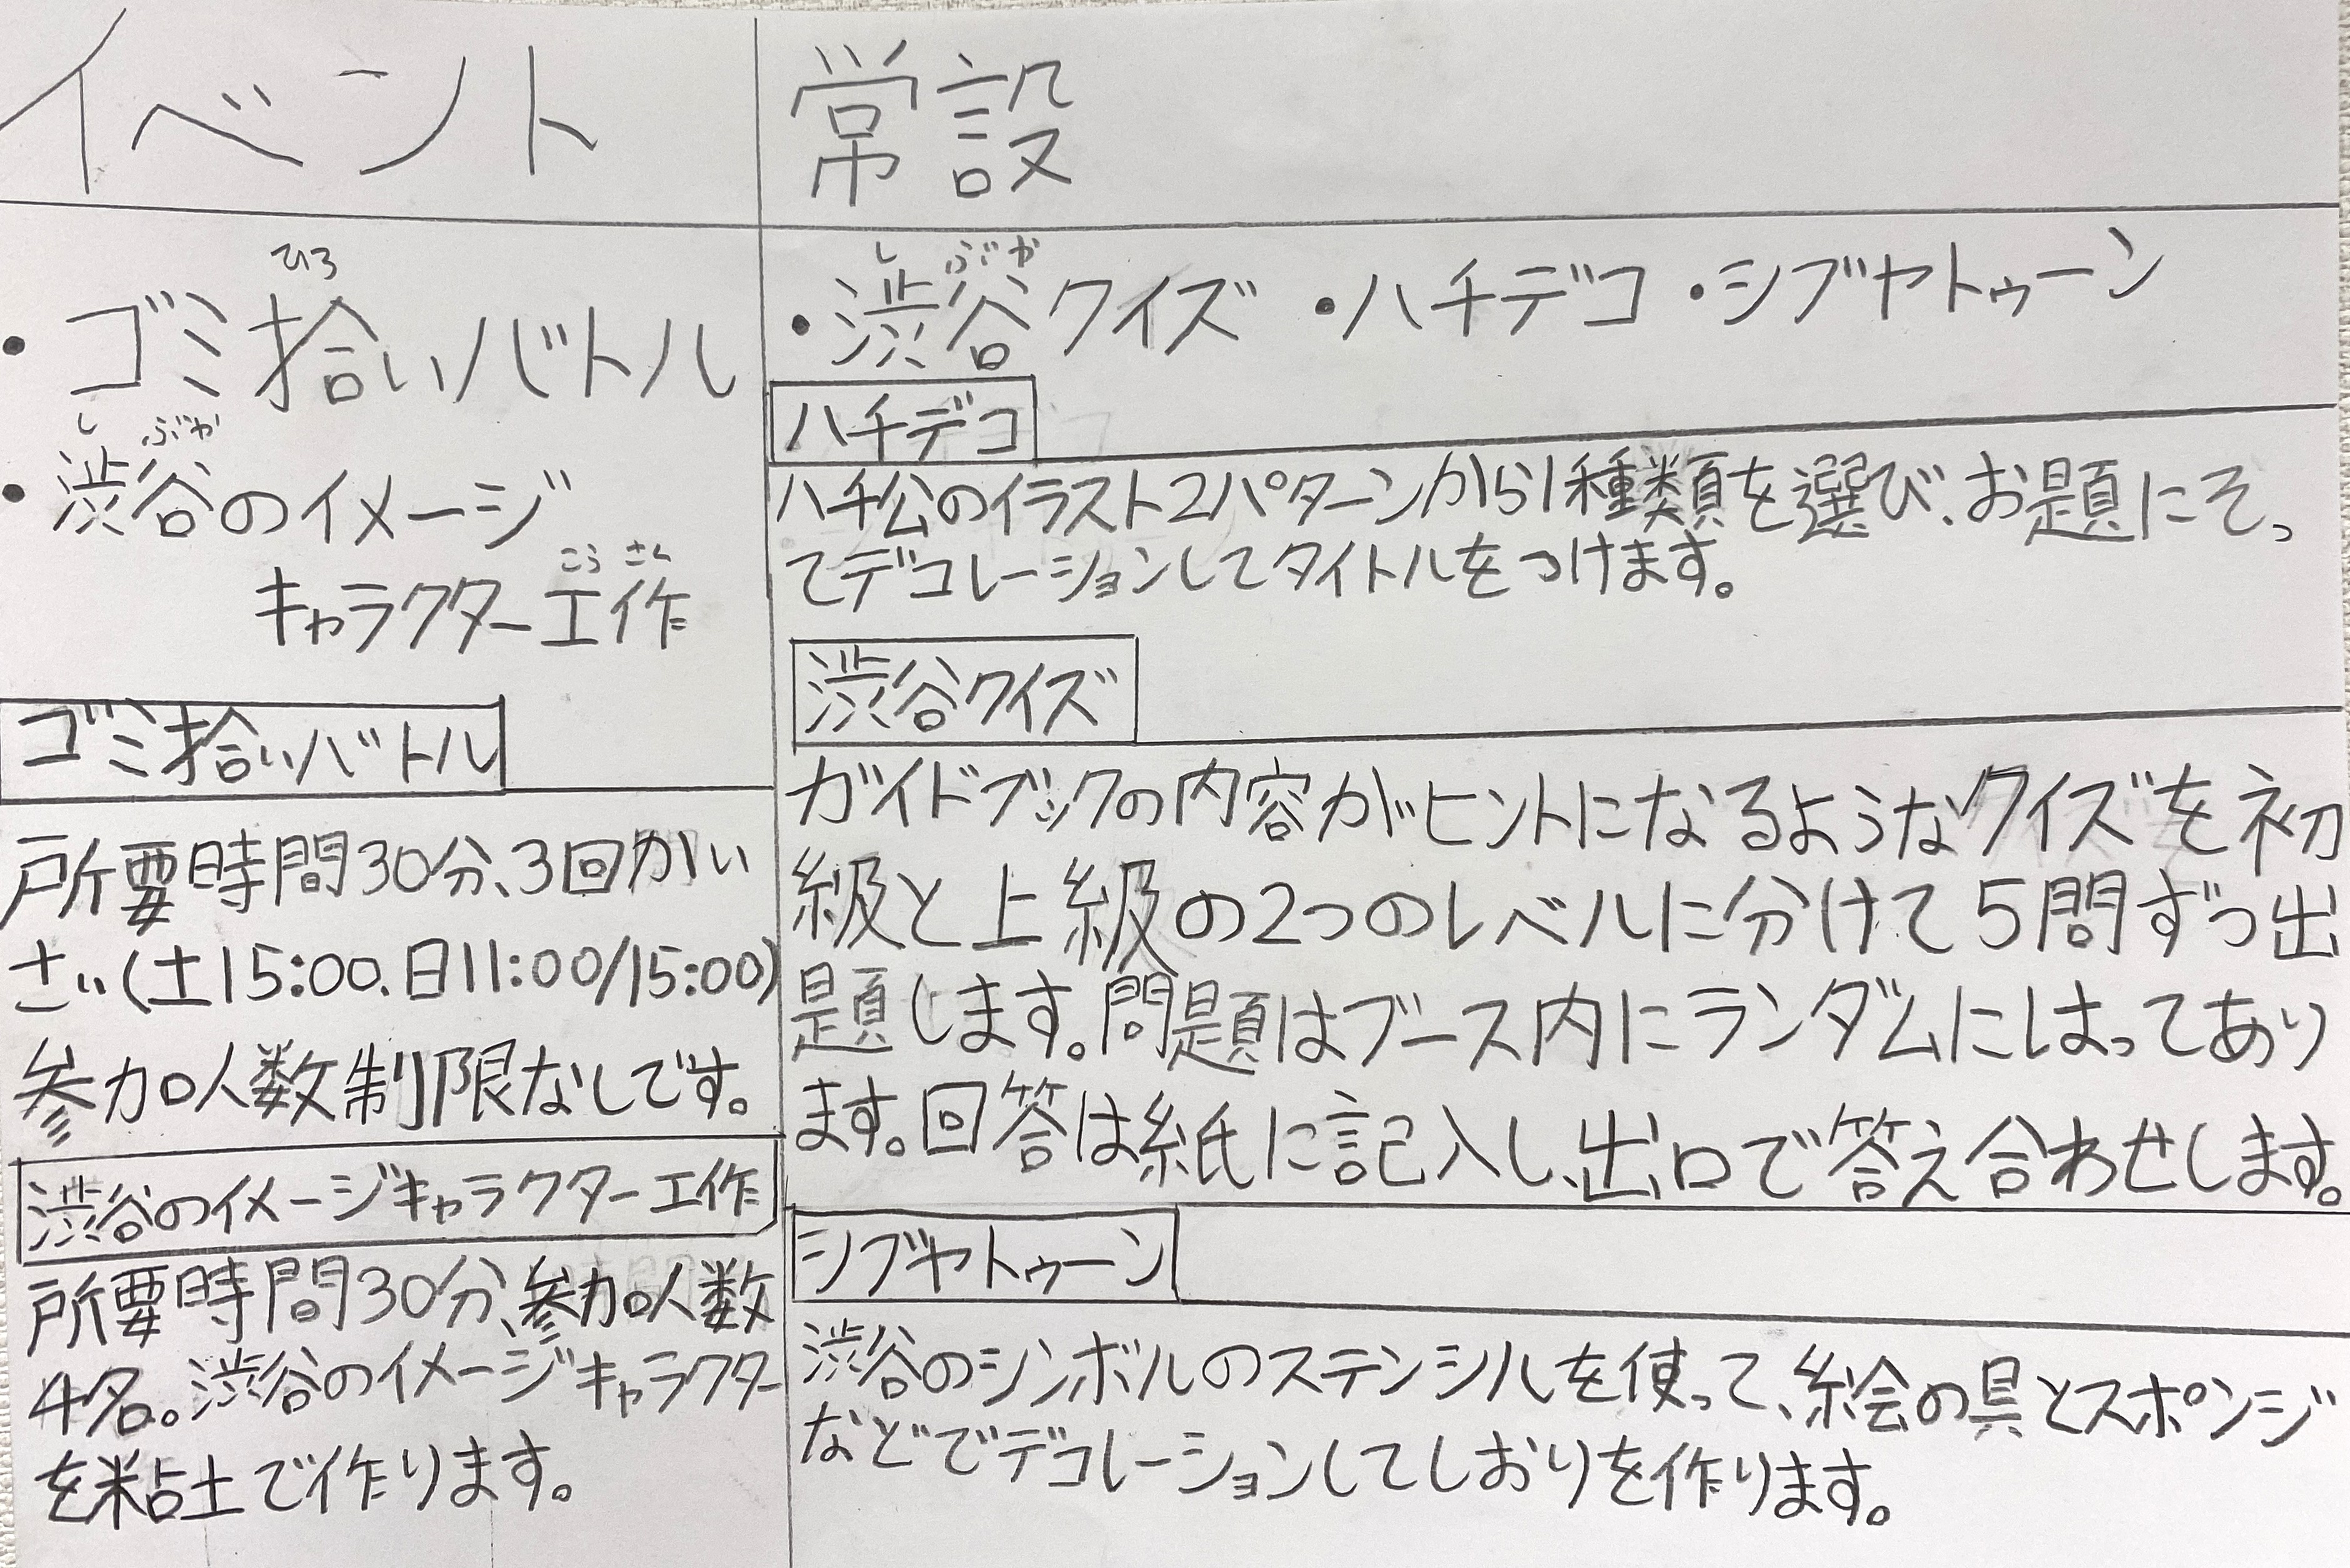 イベント
ひろ
・ゴミ拾いバトル
し ぶや
・渋谷のイメージ
こう さく
キャラクター工作
ゴミ拾いバトル
所要時間30分、3回かい
さい(土15:00、日11:00/15:00)
参加人数制限なしです。
渋谷のイメージキャラクター工作
所要時間30分、参加人数
4名。渋谷のイメージキャラクター
を粘土で作ります。
常設
し ぶや
・渋谷クイズ ・ハチデコ ・シブヤトゥーン
ハチデコ
ハチ公のイラスト2パターンから1種類を選び、お題にそっ
てデコレーションしてタイトルをつけます。
渋谷クイズ
ガイドブックの内容がヒントになるようなクイズを初
級と上級の2つのレベルに分けて5問ずつ出
題します。問題はブース内にランダムにはってあり
ます。回答は紙に記入し、出口で答え合わせします。
シブヤトゥーン
渋谷のシンボルのステンシルを使って、絵の具とスポンジ
などでデコレーションしてしおりを作ります。